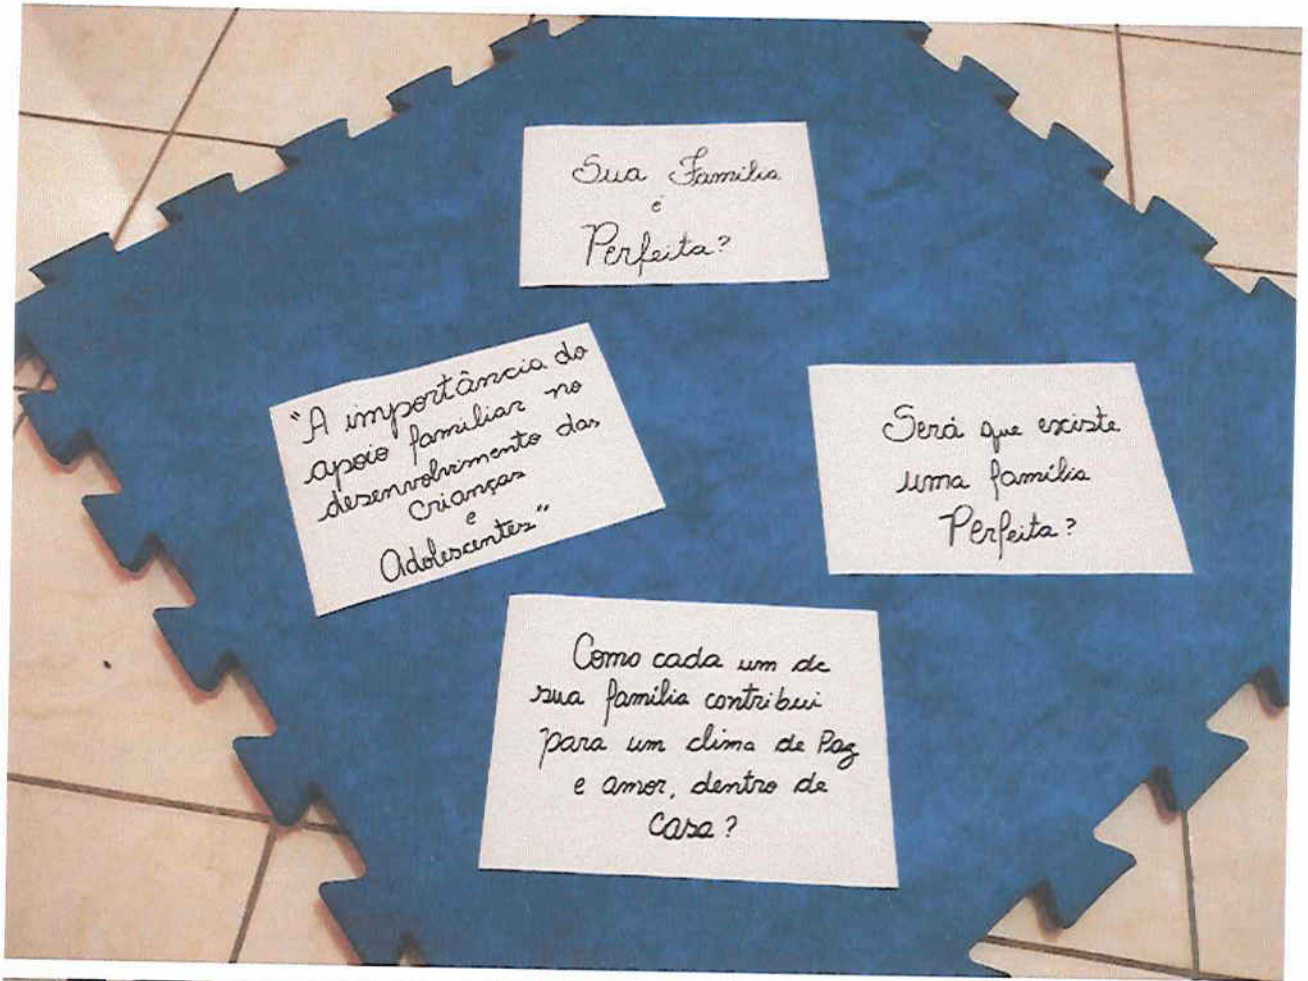 Sua Família
é
Perfeita?
"A importância do
apoio familiar no
desenvolvimento das
Crianças
e
Adolescentes"
Será que existe
uma família
Perfeita?
Como cada um de
sua família contribui
para um clima de Paz
e amor, dentro de
Casa?